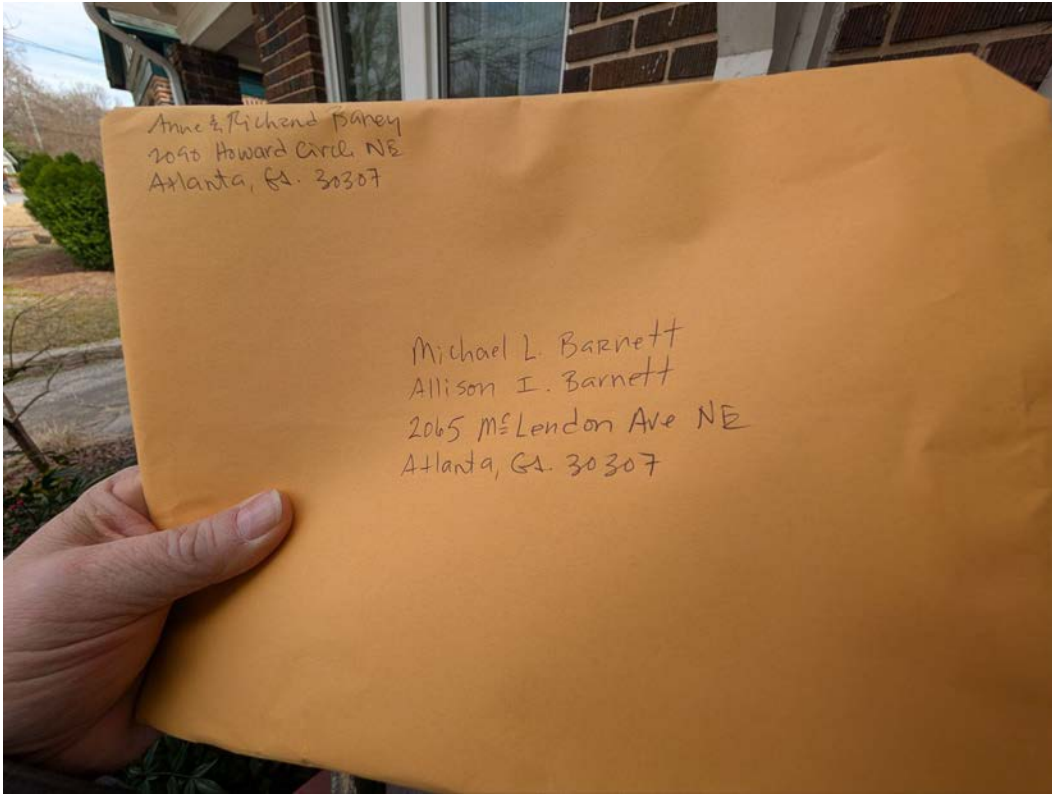 Anne & Richard Baney
2090 Howard Circle NE
Atlanta, GA. 30307
Michael L. Barnett
Allison I. Barnett
2065 McLendon Ave NE
Atlanta, GA. 30307